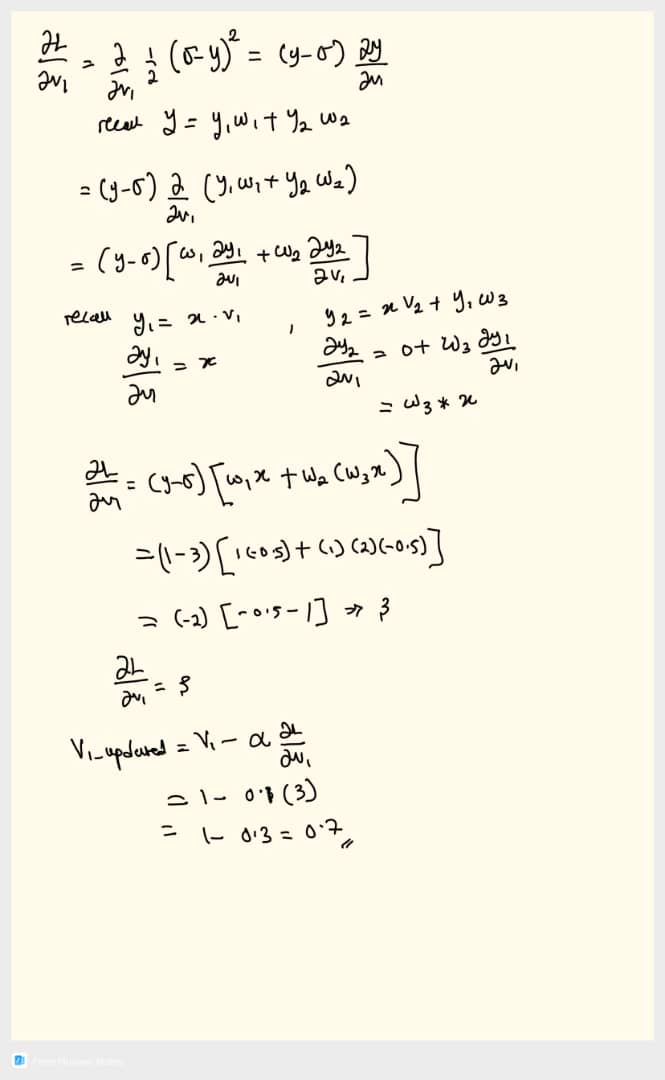 ∂L/∂v₁ = ∂/∂v₁ 1/2 (σ-y)² = (y-σ) ∂y/∂v₁
recall y = y₁w₁ + y₂ w₂
= (y-σ) ∂/∂v₁ (y₁w₁ + y₂ w₂)
= (y-σ) [w₁ ∂y₁/∂v₁ + w₂ ∂y₂/∂v₁]
recall y₁ = x · v₁ , y₂ = x v₂ + y₁ w₃
∂y₁/∂v₁ = x ∂y₂/∂v₁ = 0 + w₃ ∂y₁/∂v₁
= w₃ * x
∂L/∂v₁ = (y-σ) [w₁x + w₂ (w₃x)]
= (1-3) [1(-0.5) + (1) (2)(-0.5)]
= (-2) [-0.5-1] ⇒ 3
∂L/∂v₁ = 3
V₁_updated = V₁ - α ∂L/∂v₁
= 1 - 0.1 (3)
= 1 - 0.3 = 0.7